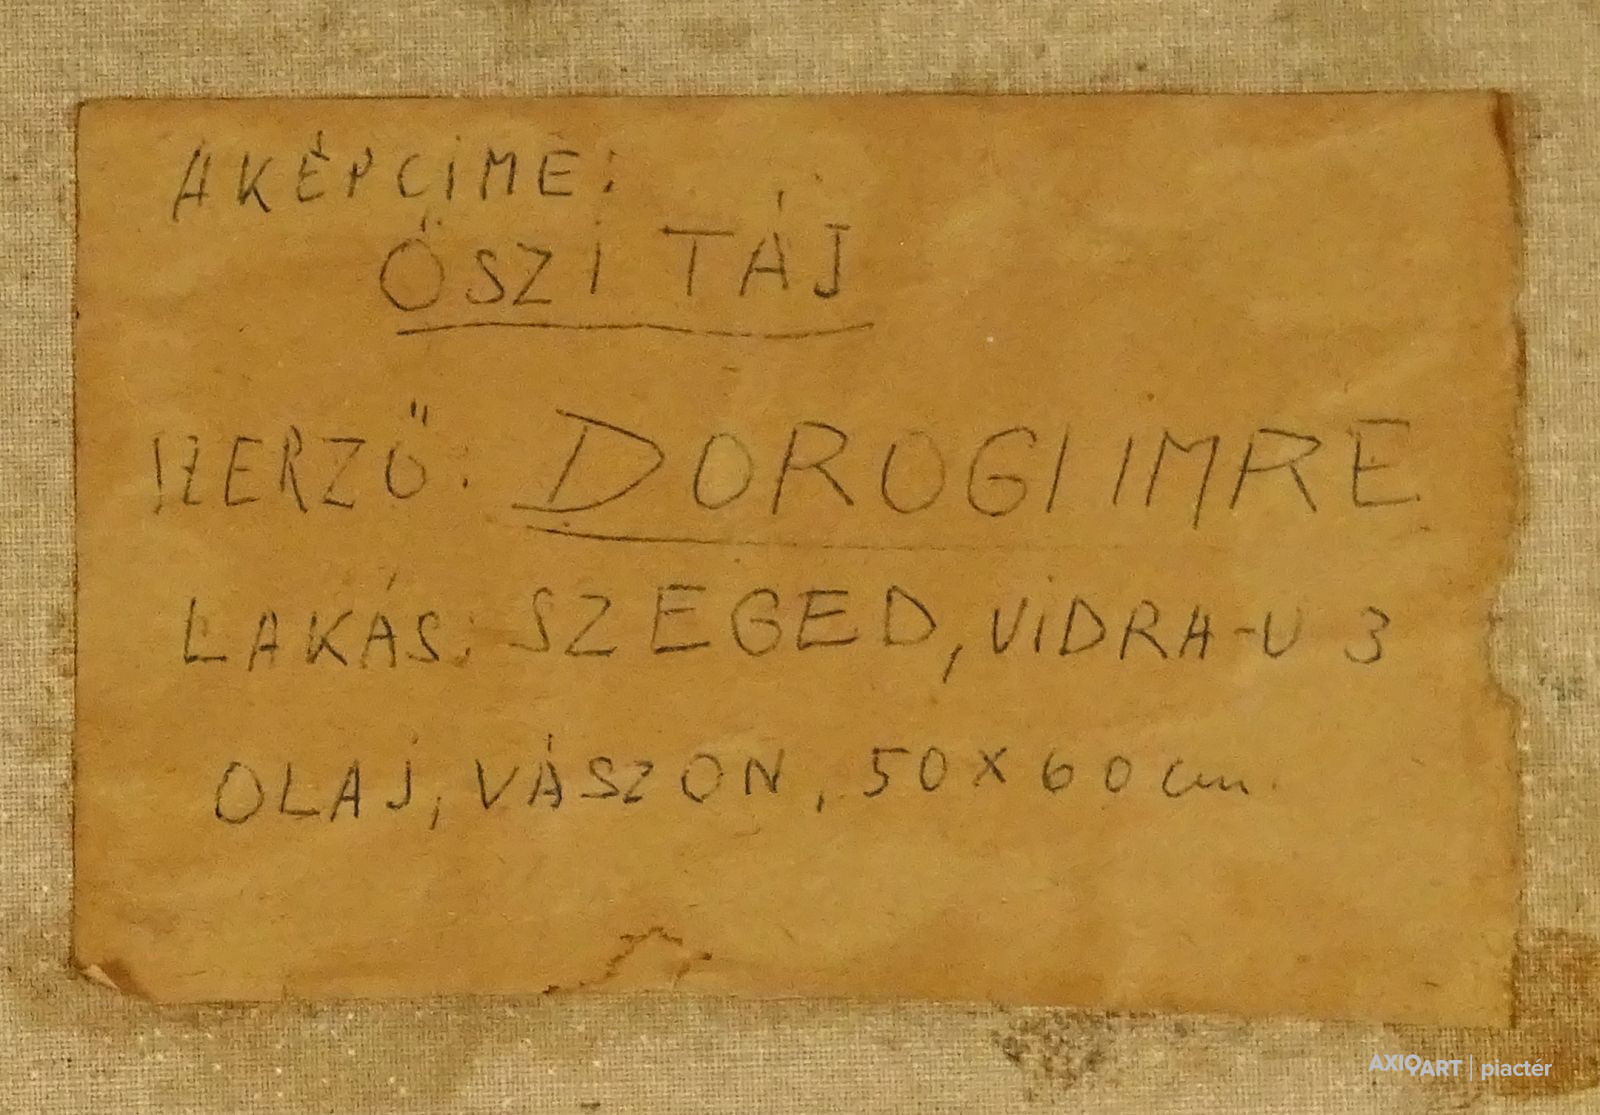 A KÉP CÍME:
ŐSZI TÁJ
SZERZŐ: DOROGI IMRE
LAKÁS: SZEGED, VIDRA-U 3
OLAJ, VÁSZON, 50 X 60 cm.
AXIOART | piactér